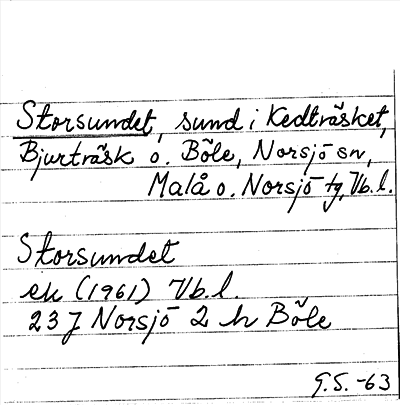 Storsundet, sund i Kedträsket,
Bjurträsk o. Böle, Norsjö sn,
Malå o. Norsjö tg, Vb. l.
Storsundet
ek (1961) Vb. l.
23 J Norsjö 2 h Böle
G.S. -63